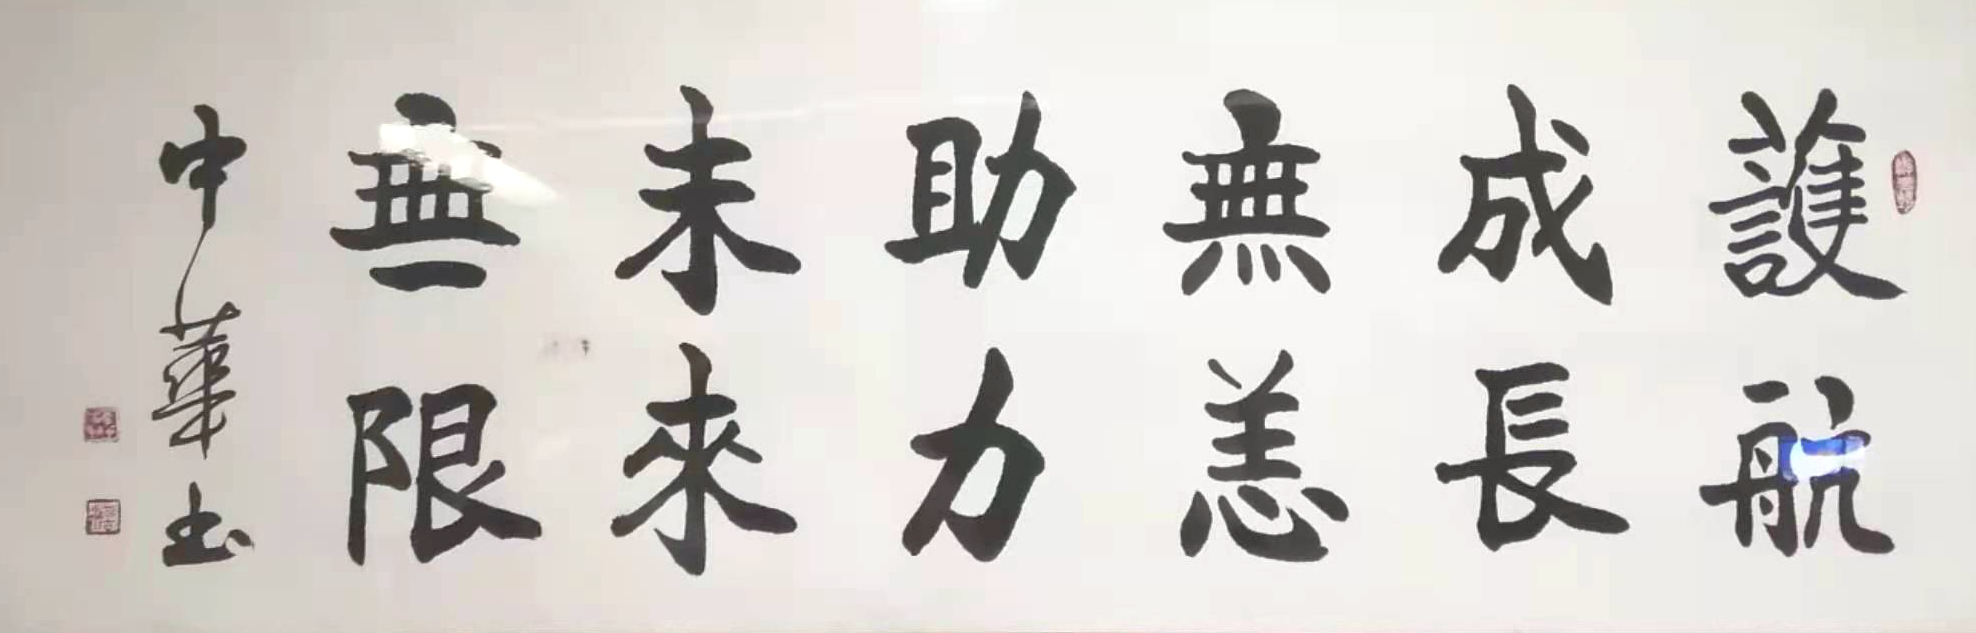 護航
成長
無恙
助力
未來
無限
中華书